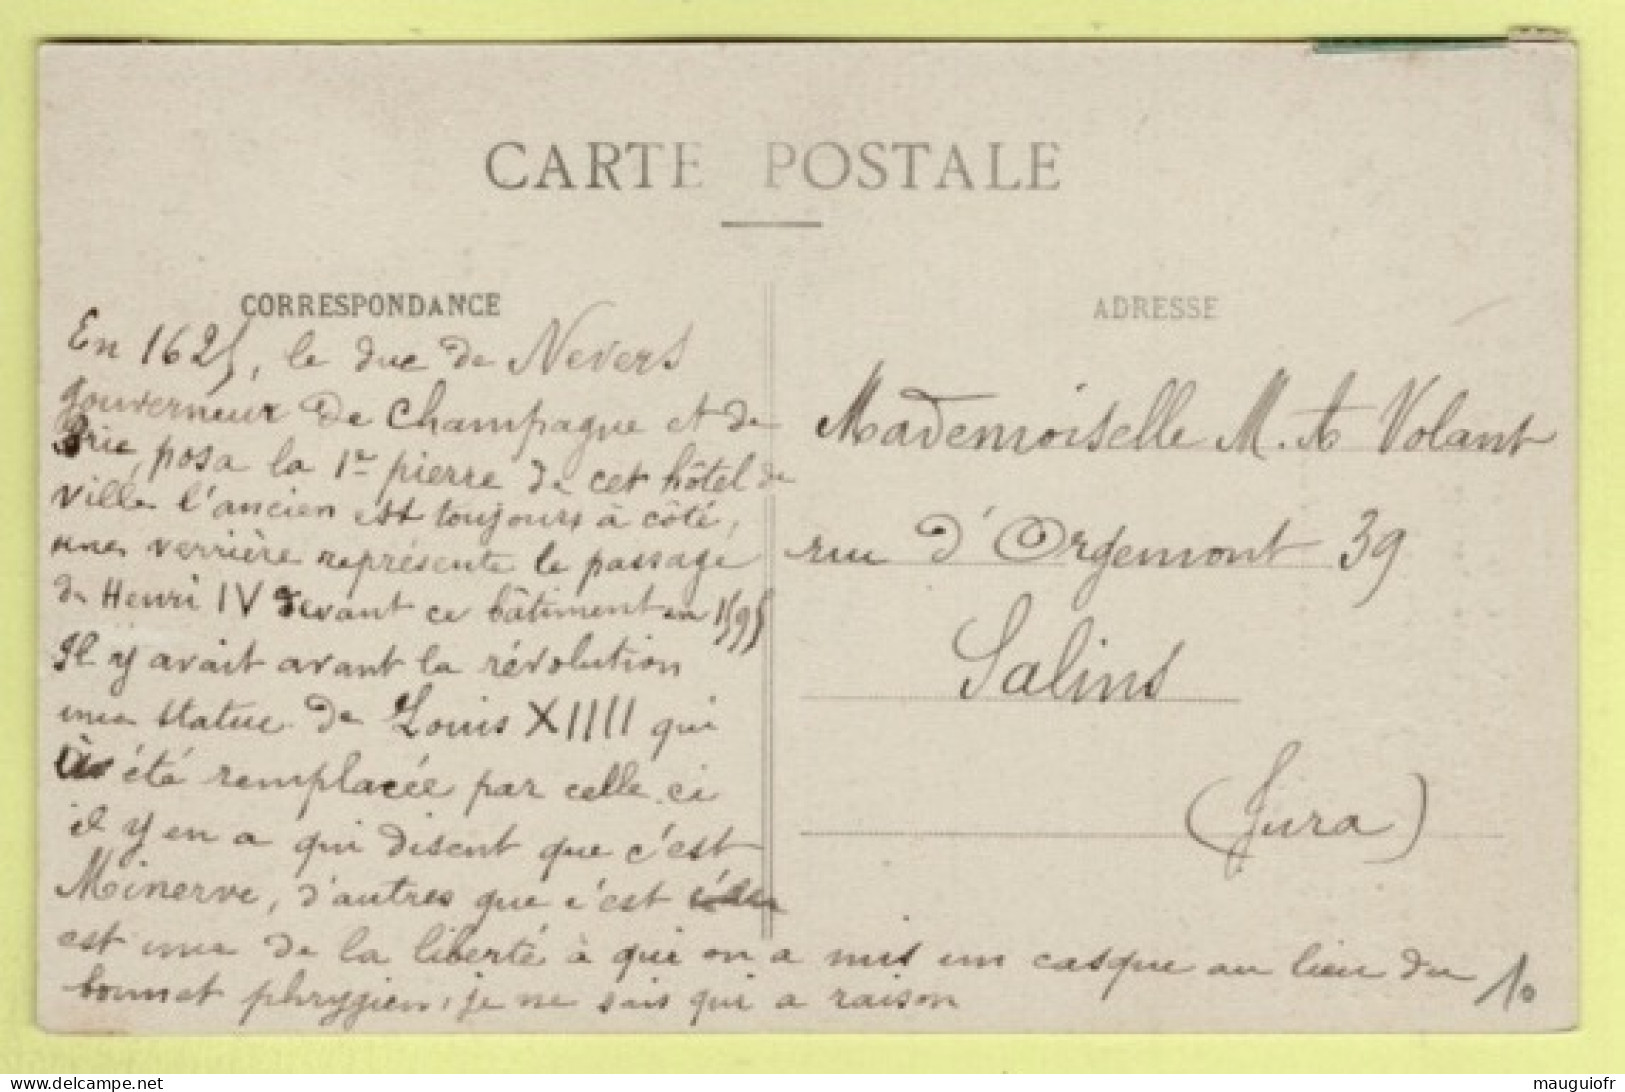 CARTE POSTALE
CORRESPONDANCE
En 1625, le duc de Nevers
gouverneur de Champagne et de
Brie, posa la 1re pierre de cet hôtel de
ville l'ancien est toujours à côté,
une verrière représente le passage
de Henri IV devant ce bâtiment en 1595
Il y avait avant la révolution
une statue de Louis XIIII qui
a été remplacée par celle ci
il y en a qui disent que c'est
Minerve, d'autres que c'est
est une de la liberté à qui on a mis un casque au lieu du
bonnet phrygien, je ne sais qui a raison
ADRESSE
Mademoiselle M. A Volant
rue d'Orgemont 39
Salins
(Jura)
10
mauguiofr